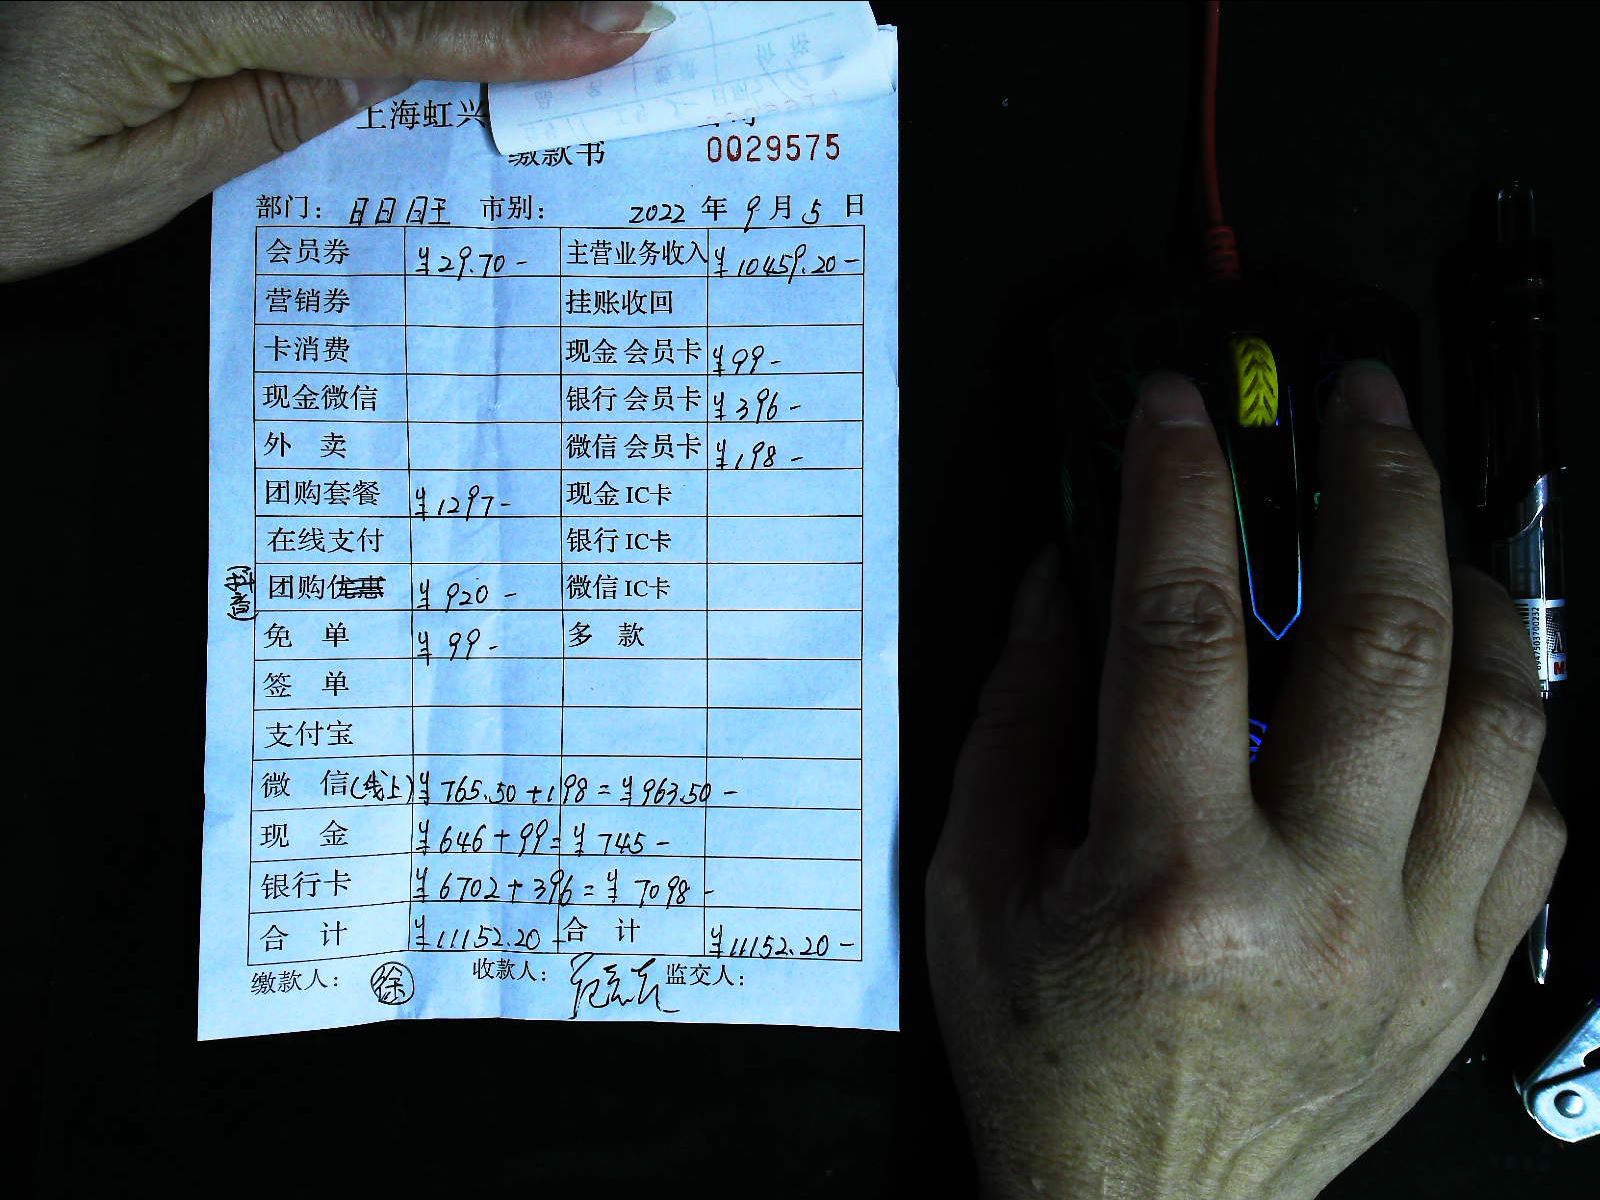 上海虹兴
缴款书 0029575
部门：日日旺 市别： 2022 年 9 月 5 日
会员券 ¥29.70- 主营业务收入 ¥10459.20-
营销券 挂账收回
卡消费 现金会员卡 ¥99-
现金微信 银行会员卡 ¥396-
外 卖 微信会员卡 ¥198-
团购套餐 ¥1297- 现金IC卡
在线支付 银行IC卡
团购优惠 ¥920- 微信IC卡
免 单 ¥99- 多 款
签 单
支付宝
微 信(线上) ¥765.50+198=¥963.50-
现 金 ¥646+99=¥745-
银行卡 ¥6702+396=¥7098-
合 计 ¥11152.20- 合 计 ¥11152.20-
缴款人：徐 收款人： 监交人：